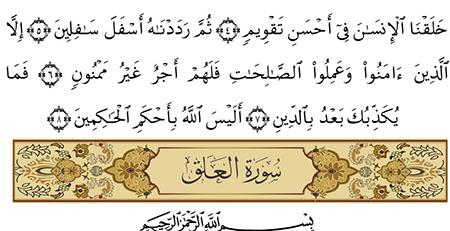 خَلَقْنَا ٱلْإِنسَـٰنَ فِىٓ أَحْسَنِ تَقْوِيمٍ ﴿٤﴾ ثُمَّ رَدَدْنَـٰهُ أَسْفَلَ سَـٰفِلِينَ ﴿٥﴾ إِلَّا
ٱلَّذِينَ ءَامَنُوا۟ وَعَمِلُوا۟ ٱلصَّـٰلِحَـٰتِ فَلَهُمْ أَجْرٌ غَيْرُ مَمْنُونٍ ﴿٦﴾ فَمَا
يُكَذِّبُكَ بَعْدُ بِٱلدِّينِ ﴿٧﴾ أَلَيْسَ ٱللَّهُ بِأَحْكَمِ ٱلْحَـٰكِمِينَ ﴿٨﴾
سُورَةُ العَلَقِ
بِسْمِ ٱللَّهِ ٱلرَّحْمَـٰنِ ٱلرَّحِيمِ